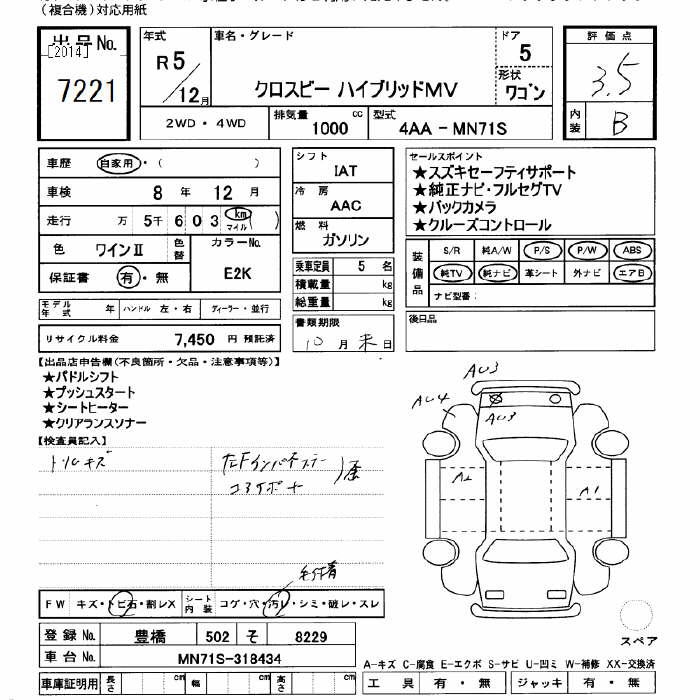 (複合機)対応用紙
出品No.
[2014]
7221
年式
R5/12月
車名・グレード
クロスビー ハイブリッドMV
ドア
5
形状
ワゴン
評価点
3.5
内装
B
2WD・4WD
排気量 1000 cc
型式 4AA - MN71S
車歴 自家用・( )
車検 8 年 12 月
走行 万 5千 6 0 3 km マイル ( )
色 ワインⅡ 色替
カラーNo. E2K
保証書 有・無
シフト
IAT
冷房
AAC
燃料
ガソリン
乗車定員 5 名
積載量 kg
総重量 kg
セールスポイント
★スズキセーフティサポート
★純正ナビ・フルセグTV
★バックカメラ
★クルーズコントロール
装備品
S/R 純A/W P/S P/W ABS
純TV 純ナビ 革シート 外ナビ エアB
ナビ型番:
モデル年式 年 ハンドル 左・右 ディーラー・並行
リサイクル料金 7,450 円 預託済
書類期限
10月末日
後日品
【出品店申告欄(不良箇所・欠品・注意事項等)】
★パドルシフト
★プッシュスタート
★シートヒーター
★クリアランスソナー
【検査員記入】
トリムキズ
左Fインパネステー
コアサポート
AU3
AU4
AU3
A2
A1
FW キズ・トビ石・割レX シート内装 コゲ・穴・汚レ・シミ・破レ・スレ
登録No. 豊橋 502 そ 8229
車台No. MN71S-318434
車庫証明用 長さ cm 幅 cm 高さ cm
スペア
A-キズ C-腐食 E-エクボ S-サビ U-凹ミ W-補修 XX-交換済
工具 有・無 ジャッキ 有・無